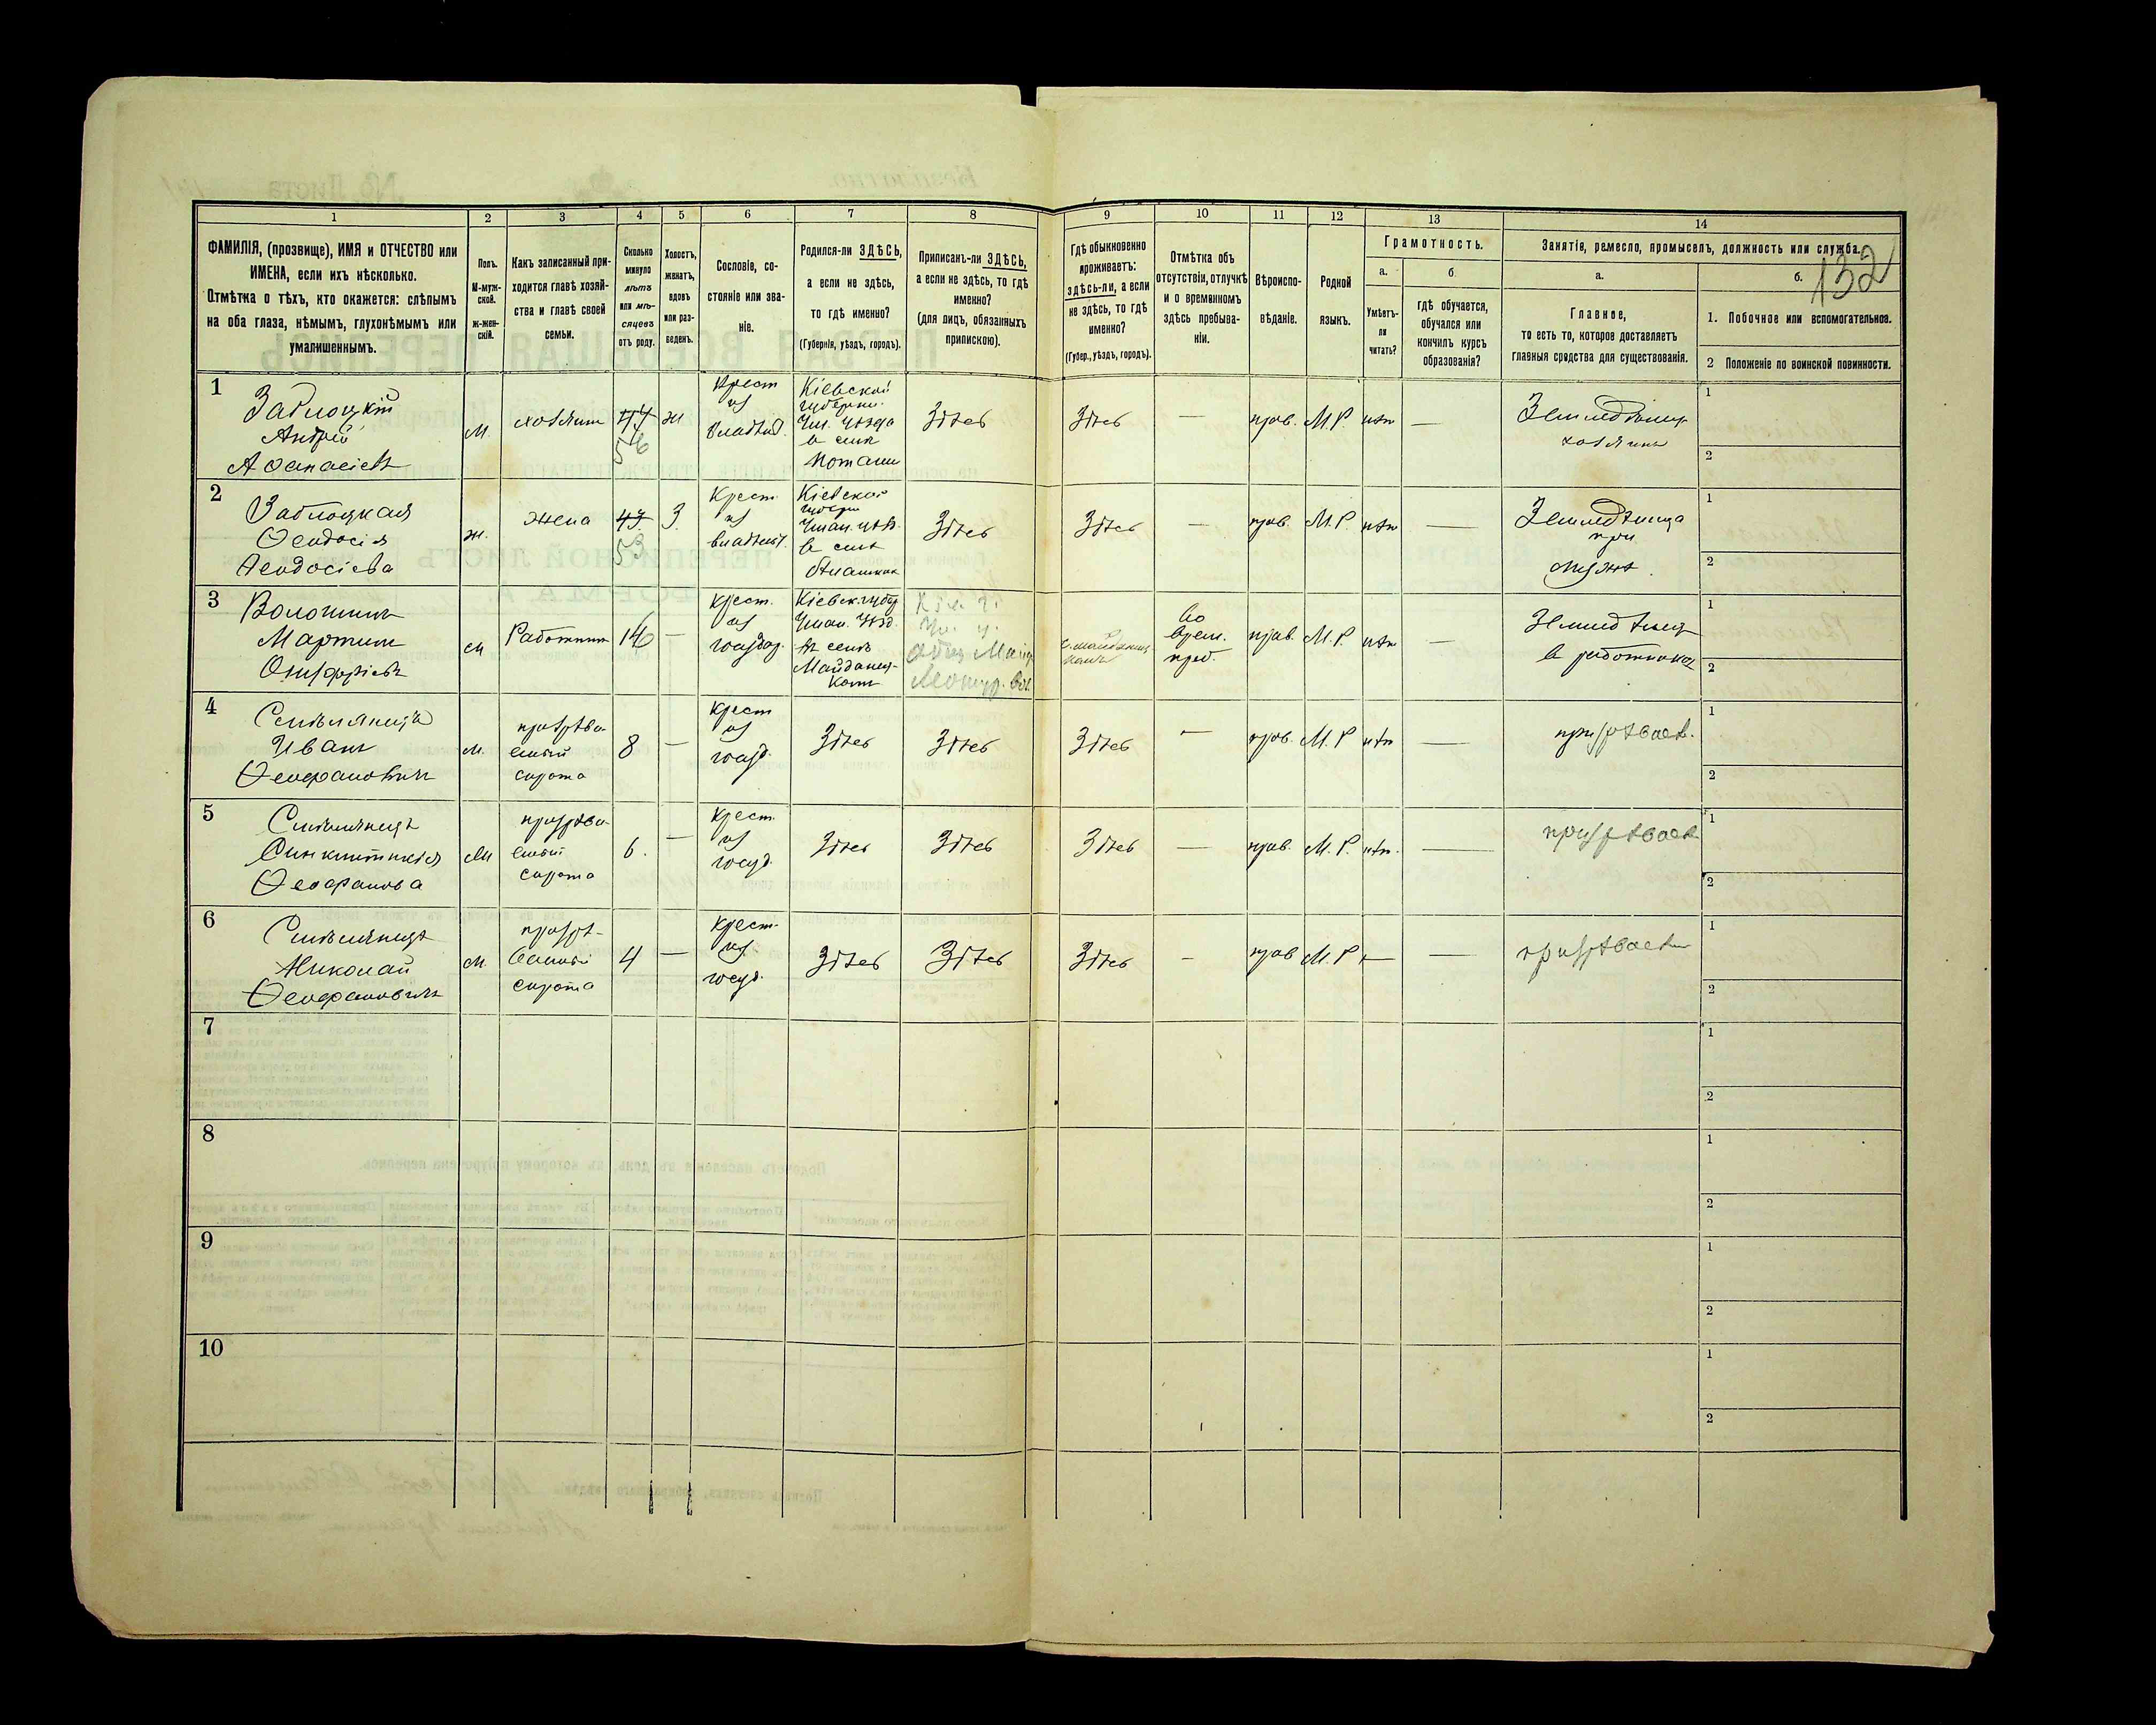 132
1
2
3
4
5
6
7
8
9
10
11
12
13
14
ФАМИЛІЯ, (прозвище), ИМЯ и ОТЧЕСТВО или
ИМЕНА, если ихъ нѣсколько.
Отмѣтка о тѣхъ, кто окажется: слѣпымъ
на оба глаза, нѣмымъ, глухонѣмымъ или
умалишеннымъ.
Полъ.
М-муж-
ской.
ж-жен-
скій.
Какъ записанный при-
ходится главѣ хозяй-
ства и главѣ своей
семьи.
Сколько
минуло
лѣтъ
или мѣ-
сяцевъ
отъ роду.
Холостъ,
женатъ,
вдовъ
или раз-
веденъ.
Сословіе, со-
стояніе или зва-
ніе.
Родился-ли ЗДѢСЬ,
а если не здѣсь,
то гдѣ именно?
(Губернія, уѣздъ, городъ).
Приписанъ-ли ЗДѢСЬ,
а если не здѣсь, то гдѣ
именно?
(для лицъ, обязанныхъ
припискою).
Гдѣ обыкновенно
проживаетъ:
здѣсь-ли, а если
не здѣсь, то гдѣ
именно?
(Губер., уѣздъ, городъ).
Отмѣтка объ
отсутствіи, отлучкѣ
и о временномъ
здѣсь пребыва-
ніи.
Вѣроиспо-
вѣданіе.
Родной
языкъ.
Грамотность.
а.
Умѣетъ-
ли
читать?
б.
гдѣ обучается,
обучался или
кончилъ курсъ
образованія?
Занятія, ремесло, промыселъ, должность или служба.
а.
Главное,
то есть то, которое доставляетъ
главныя средства для существованія.
б.
1. Побочное или вспомогательное.
2 Положеніе по воинской повинности.
1
Заблоцкій
Андрей
Аѳанасіевъ
м.
хозяинъ
56
ж
Крест
из
владѣл.
Кіевской
губерніи
Ум. уѣзда
в селѣ
Поташи
Здѣсь
Здѣсь
—
прав.
М.Р.
нѣт
—
Земледѣлец
хозяинъ
1
2
2
Заблоцкая
Ѳеодосія
Ѳеодосіева
ж.
жена
43
53
З.
Крест.
из
владѣл.
Кіевской
губерн
Уман. уѣз.
в селѣ
Здѣсь
Здѣсь
—
прав.
М.Р.
нѣт
—
Земледѣлица
при
мужѣ.
1
2
3
Волошинъ
Мартинъ
Онуфріевъ
м
Работникъ
16
—
Крест.
из
государ.
Кіевск. губер
Уман. уѣзд.
въ селѣ
Майданец-
комъ
Кіев. г.
Ум. у.
Во
врем.
преб.
прав.
М.Р.
нѣт
—
Земледѣлец
в работникахъ
1
2
4
Иванъ
Ѳеофановичъ
м.
призрѣва-
емый
сирота
8
—
Крест
из
госуд.
Здѣсь
Здѣсь
Здѣсь
—
прав.
М.Р
нѣт
—
призрѣвает.
1
2
5
Ѳеофанова
м
призрѣва-
емый
сирота
6.
—
Крест.
из
госуд.
Здѣсь
Здѣсь
Здѣсь
—
прав.
М.Р.
нѣт.
—
призрѣвает
1
2
6
Николай
Ѳеофановичъ
м.
сирота
4
—
Крест.
из
госуд.
Здѣсь
Здѣсь
Здѣсь
—
прав
М.Р
—
—
призрѣвает
1
2
7
1
2
8
1
2
9
1
2
10
1
2